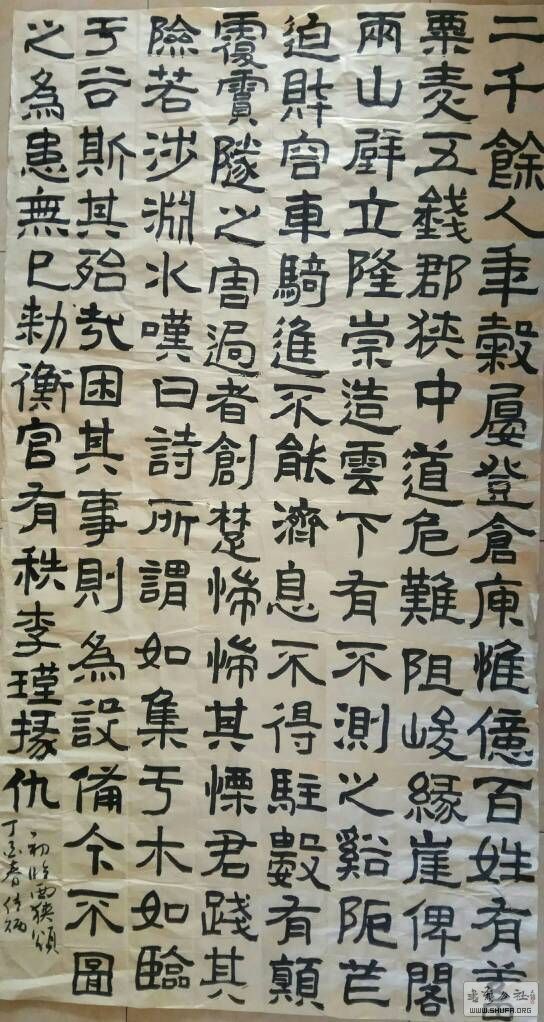 二千餘人年穀屢登倉庾惟億百姓有蓄
粟麦五錢郡狭中道危難阻峻緣崖俾閣
兩山壁立隆崇造雲下有不測之谿阨芒
迫財容車騎進不能濟息不得駐數有顛
覆霣隧之害過者創楚惴惴其慄君踐其
險若涉淵水嘆曰詩所謂如集于木如臨
于谷斯其殆哉困其事則為設備今不圖
之為患無已勑衡官有秩李瑾掾仇
初臨西狹頌
丁酉春
書法公社
WWW.SHUFA.ORG